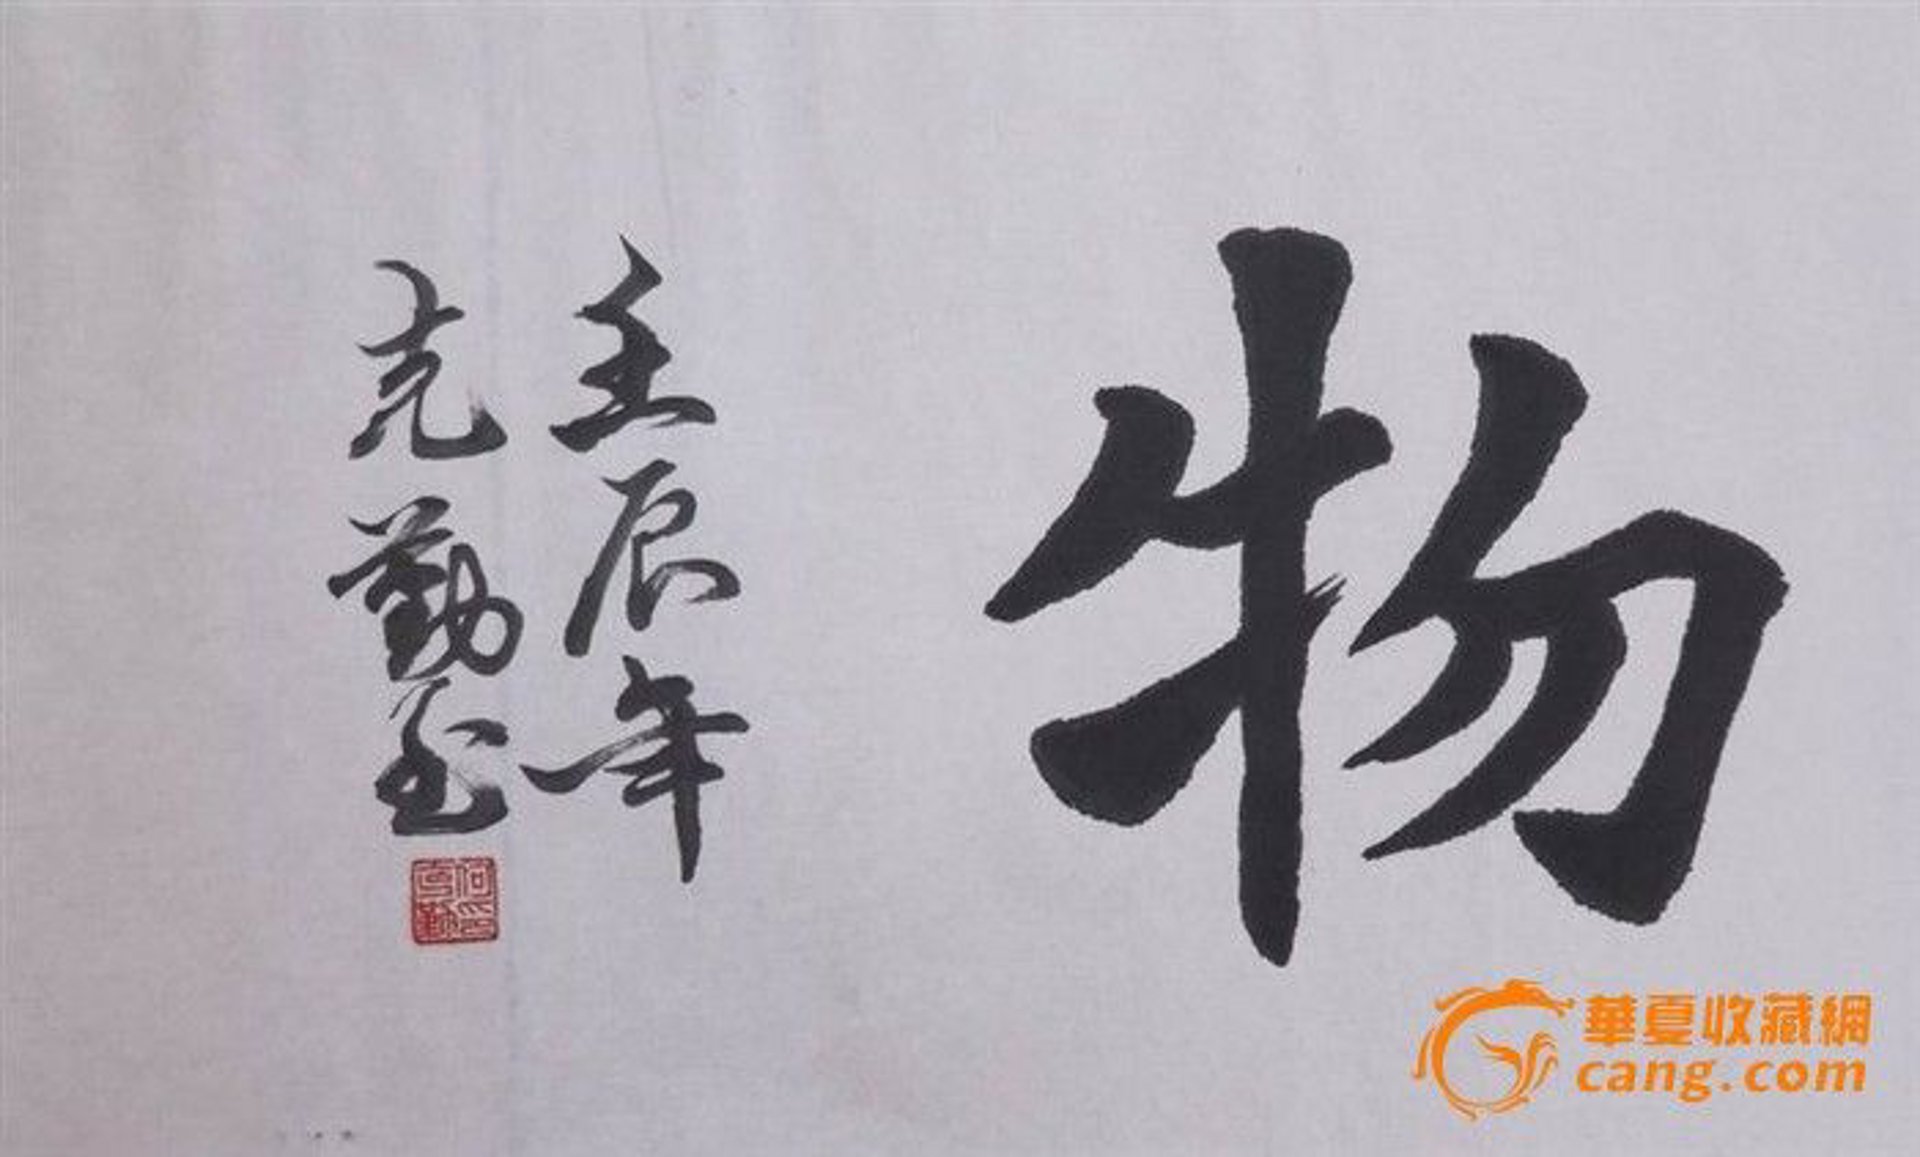 物
壬辰年
克勤书
華夏收藏網
cang.com